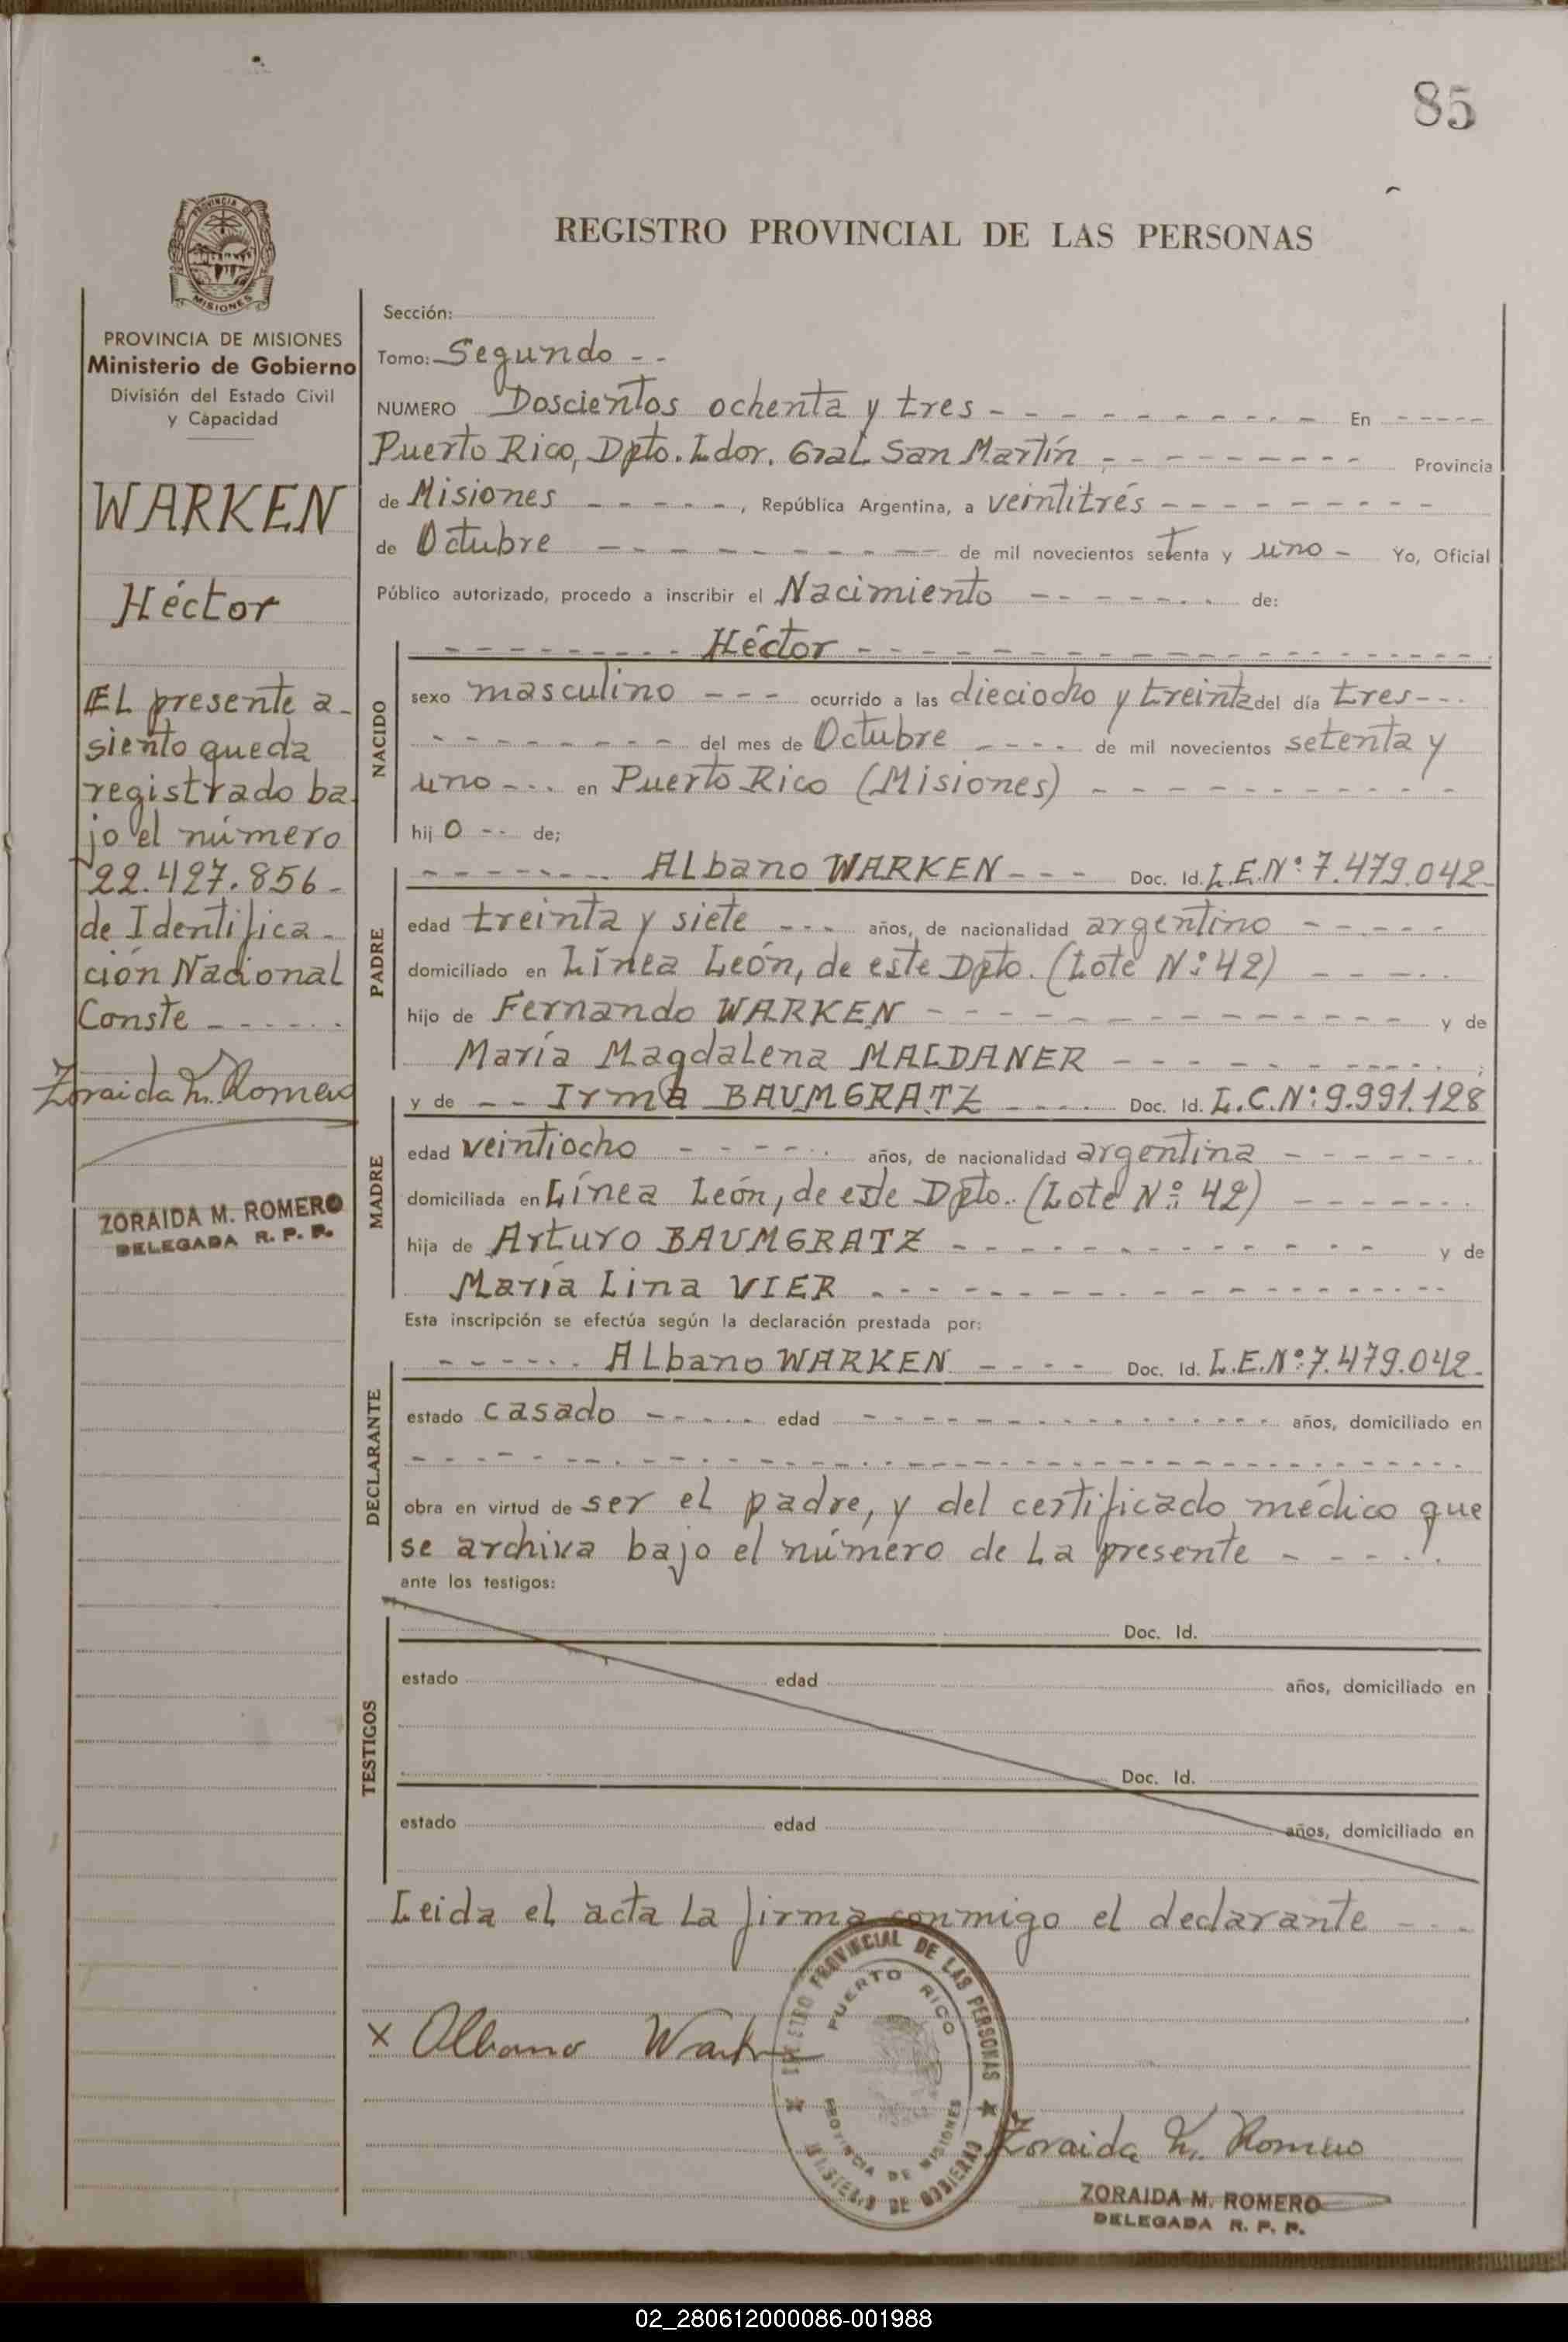 85
REGISTRO PROVINCIAL DE LAS PERSONAS
MISIONES
PROVINCIA DE MISIONES
Ministerio de Gobierno
División del Estado Civil
y Capacidad
WARKEN
Héctor
EL presente a-
siento queda
registrado ba
jo el número
22.427.856-
de Identifica-
ción Nacional
Conste
Zoraida M. Romero
ZORAIDA M. ROMERO
DELEGADA R. P. P.
Sección:
Tomo: Segundo
NUMERO Doscientos ochenta y tres En
Puerto Rico, Dpto. Ldor. Gral. San Martín Provincia
de Misiones, República Argentina, a veintitrés
de Octubre de mil novecientos setenta y uno Yo, Oficial
Público autorizado, procedo a inscribir el Nacimiento de:
NACIDO
Héctor
sexo masculino ocurrido a las dieciocho y treinta del día tres
del mes de Octubre de mil novecientos setenta y
uno en Puerto Rico (Misiones)
hijo de;
PADRE
Albano WARKEN Doc. Id. L.E.Nº: 7.479.042
edad treinta y siete años, de nacionalidad argentino
domiciliado en Línea León, de este Dpto. (Lote Nº 42)
hijo de Fernando WARKEN y de
María Magdalena MALDANER ;
MADRE
y de Irma BAUMGRATZ Doc. Id. L.C.Nº: 9.991.128
edad veintiocho años, de nacionalidad argentina
domiciliada en Línea León, de este Dpto. (Lote Nº 42)
hija de Arturo BAUMGRATZ y de
María Lina VIER
Esta inscripción se efectúa según la declaración prestada por:
DECLARANTE
Albano WARKEN Doc. Id. L.E.Nº: 7.479.042
estado casado edad años, domiciliado en
obra en virtud de ser el padre, y del certificado médico que
se archiva bajo el número de la presente
ante los testigos:
TESTIGOS
Doc. Id.
estado edad años, domiciliado en
Doc. Id.
estado edad años, domiciliado en
Leida el acta la firma conmigo el declarante
x Albano Warken
REGISTRO PROVINCIAL DE LAS PERSONAS
PUERTO RICO
PROVINCIA DE MISIONES
MINISTERIO DE GOBIERNO
Zoraida M. Romero
ZORAIDA M. ROMERO
DELEGADA R. P. P.
02_280612000086-001988